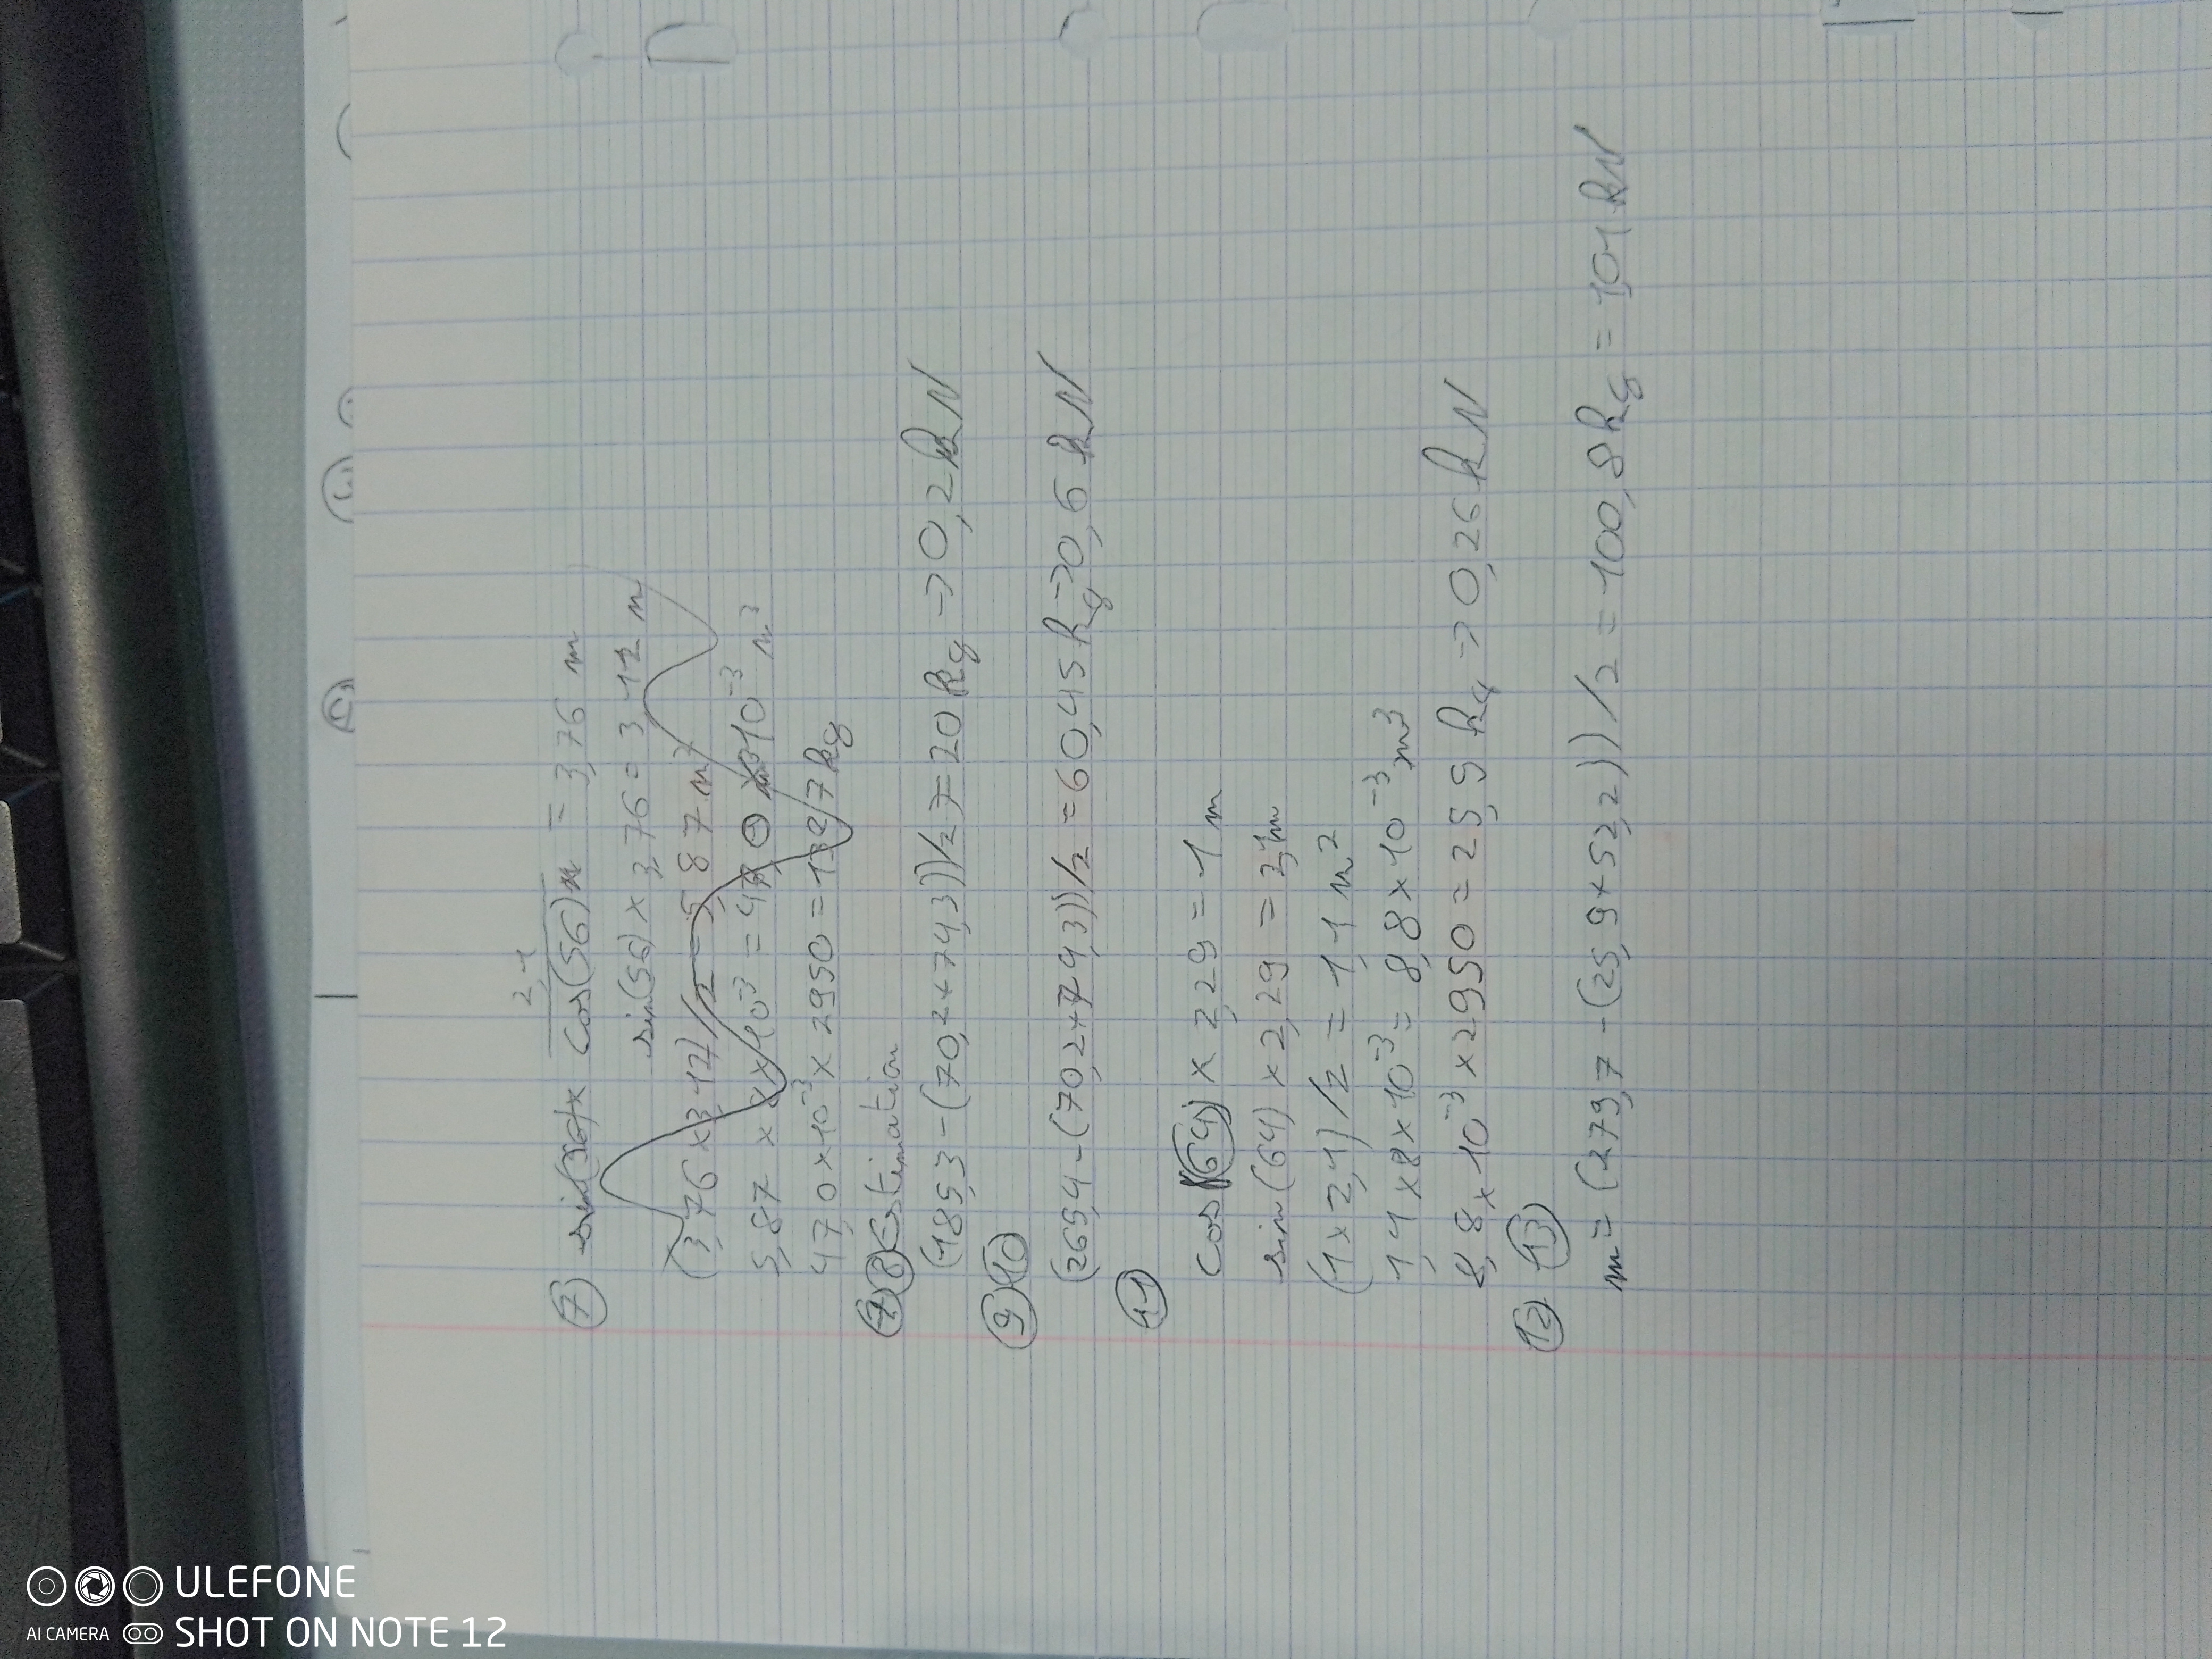 2,1
⑦ cos(56) = 3,76 m
sin(56) × 3,76 = 3,12 m
(3,76 × 3,12)/2 = 5,87 m²
5,87 × 8 × 10⁻³ = 47,0 × 10⁻³ m³
47,0 × 10⁻³ × 2950 = 138,7 kg
⑦⑧ Estimation
(185,3 - (70,2 + 74,3))/2 = 20 kg → 0,2 kN
⑨⑩
(265,4 - (70,2 + 74,3))/2 = 60,45 kg → 0,6 kN
⑪
cos(64) × 2,29 = 1 m
sin(64) × 2,29 = 2,1 m
(1 × 2,1)/2 = 1,1 m²
1,1 × 8 × 10⁻³ = 8,8 × 10⁻³ m3
8,8 × 10⁻³ × 2950 = 25,9 kg → 0,26 kN
⑫ ⑬
m = (279,7 - (25,9 + 52,2))/2 = 100,8 kg = 1,01 kN
ULEFONE
AI CAMERA SHOT ON NOTE 12